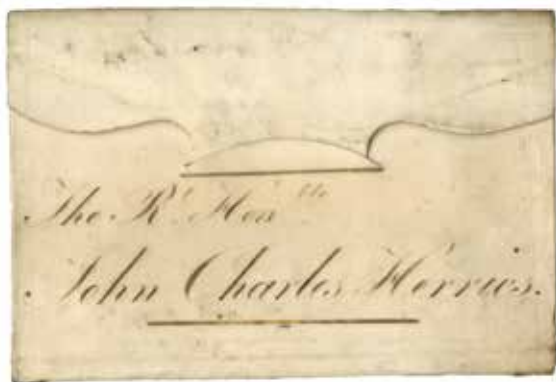 The Rt. Honble
John Charles Herries.